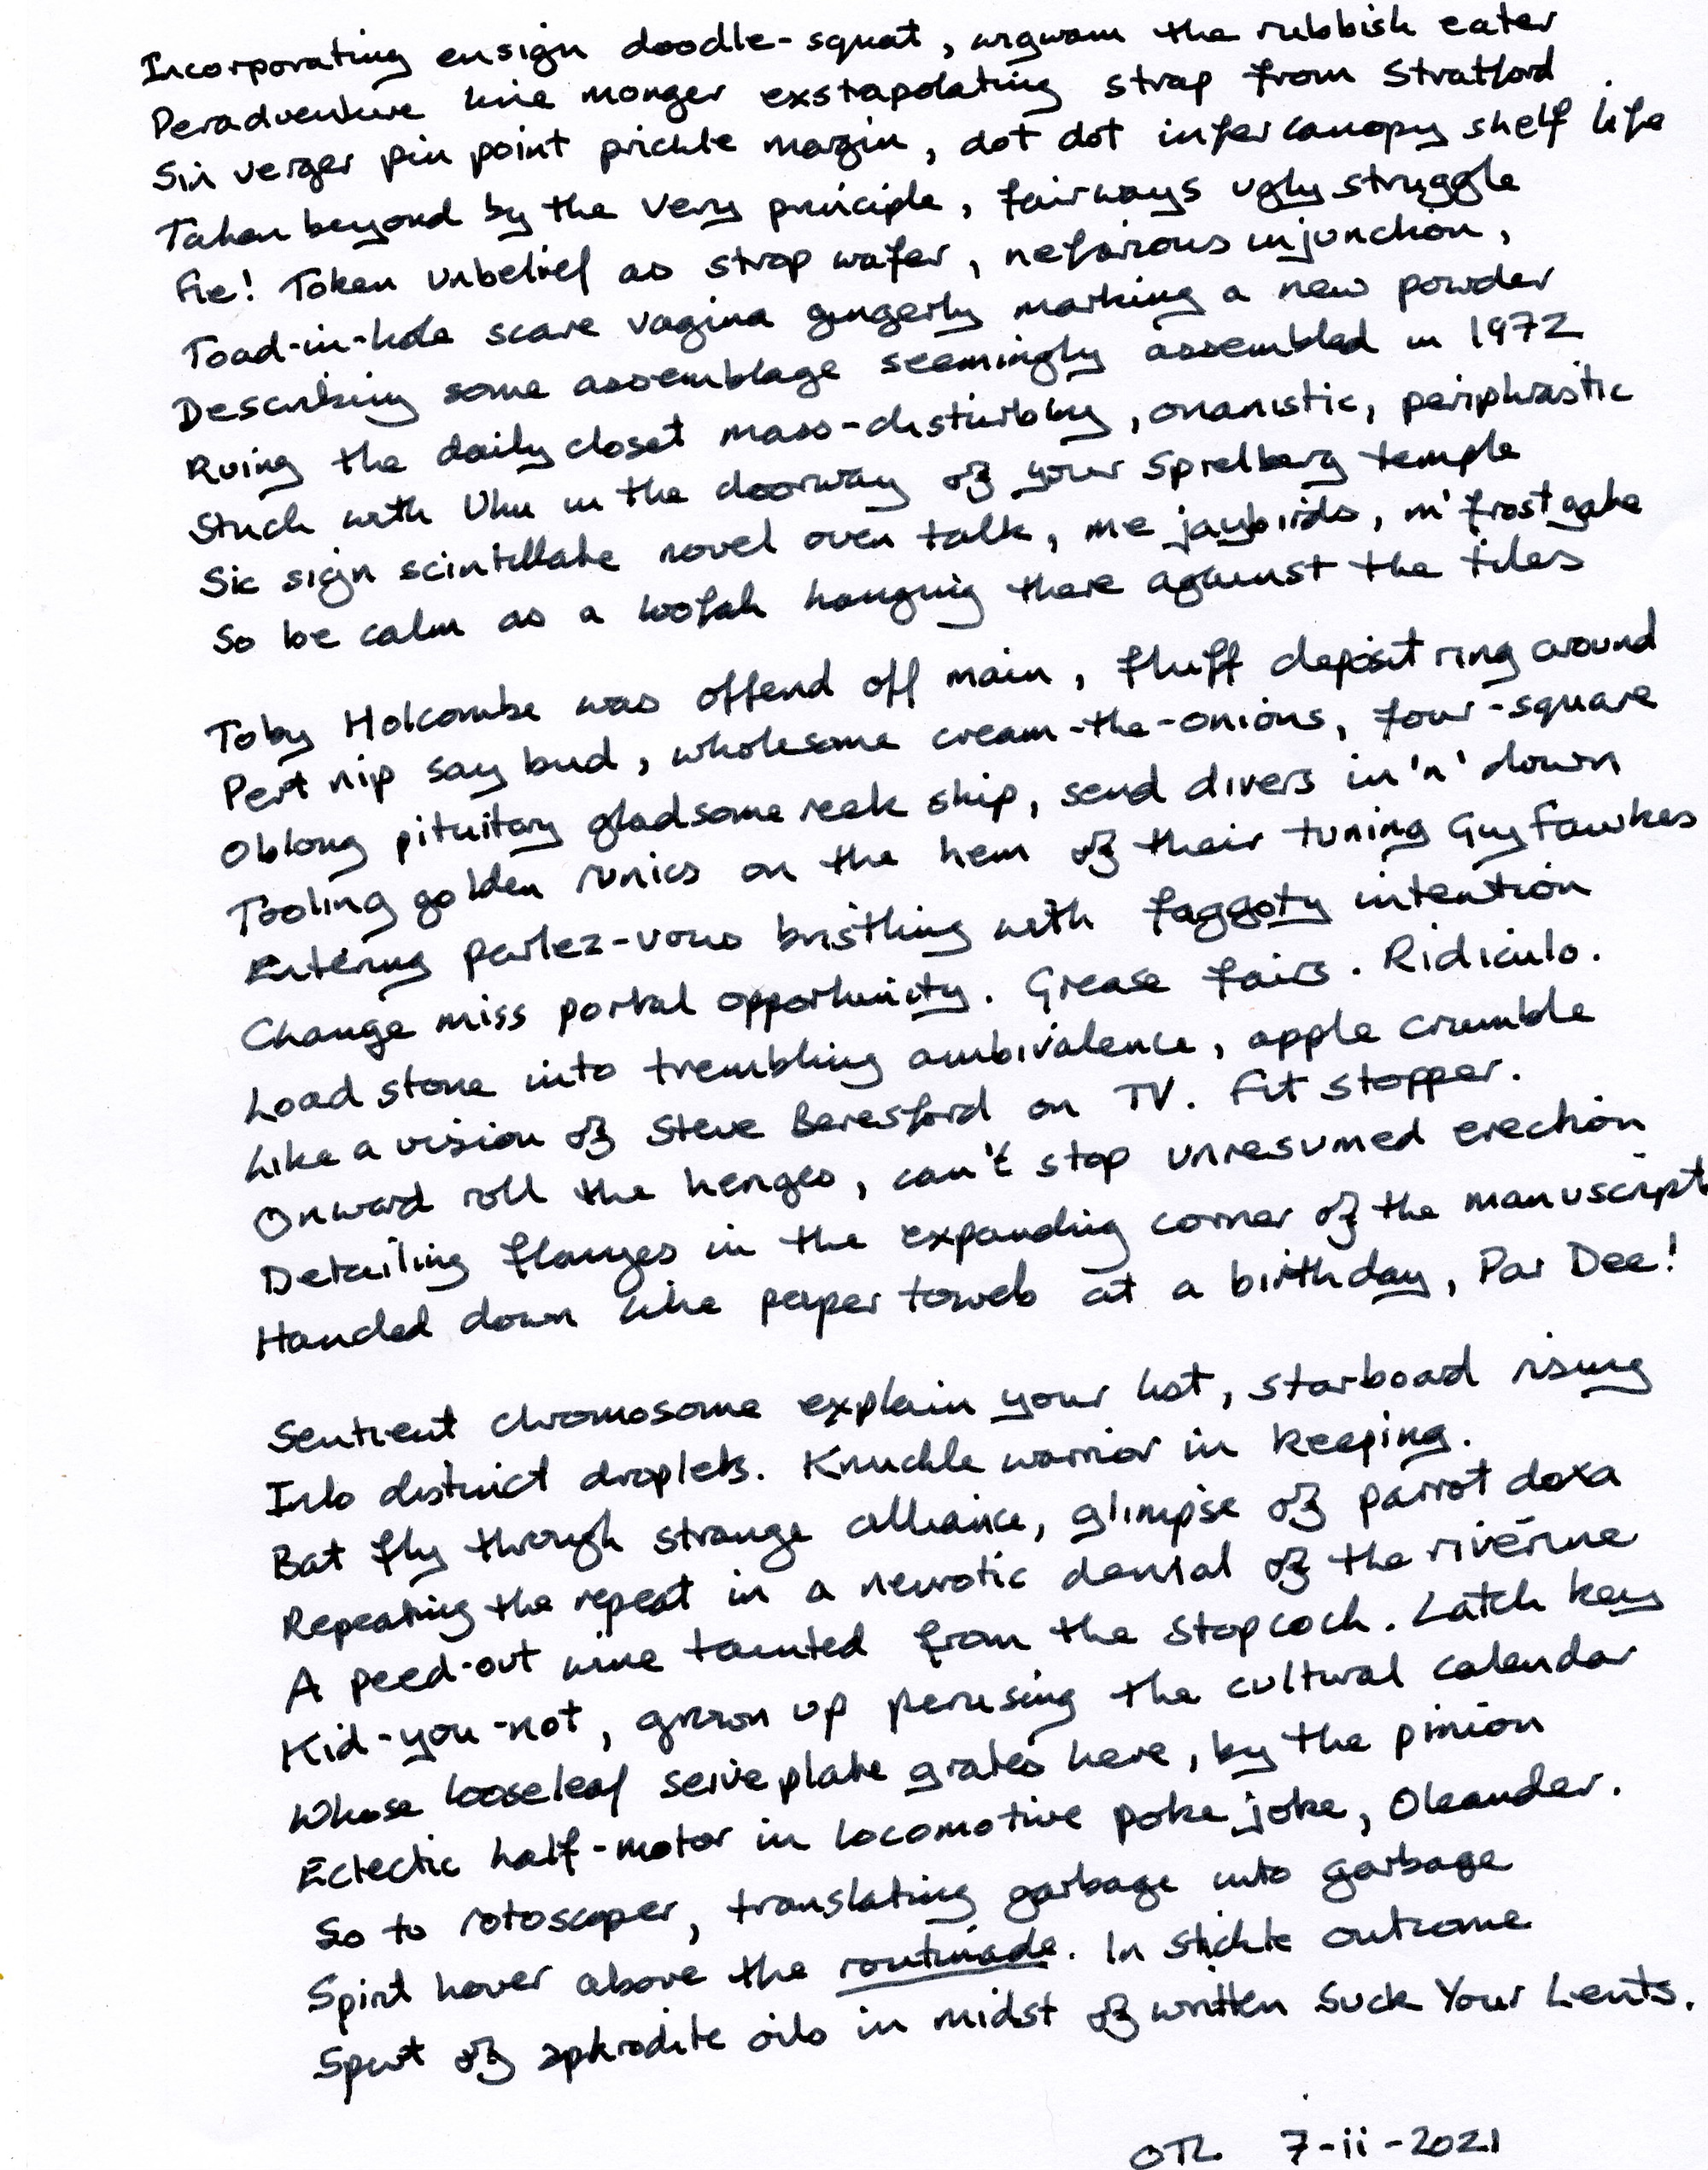 Incorporating ensign doodle-squat, wigwam the rubbish eater
Peradventure line monger exstrapolating strap from Stratford
Sin verger pin point prickle margin, dot dot infer canopy shelf life
Taken beyond by the very principle, fairways ugly struggle
Fie! Token unbelief as strop wafer, nefarious injunction,
Toad-in-hole scare vagina gingerly marking a new powder
Describing some assemblage seemingly assembled in 1972
Ruing the daily closet mass-disturbby, onanistic, periphrastic
Stuck with Uhu in the doorway of your Spielberg temple
Sic sign scintillate novel oven talk, me jaybirds, m' frost gate
So be calm as a loofah hanging there against the tiles
Toby Holcombe was offend off main, fluff deposit ring around
Pert nip say bud, wholesome cream-the-onions, four-square
Oblong pituitary gladsome reek ship, send divers in 'n' down
Tooling golden runics on the hem of their tuning Guy Fawkes
Entering parlez-vous bristling with faggoty intention
Change miss portal opportunity. Grease fairs. Ridiculo.
Load stone into trembling ambivalence, apple crumble
Like a vision of Steve Beresford on TV. Fit stopper.
Onward roll the henges, can't stop unresumed erection
Detailing flanges in the expanding corner of the manuscript
Handed down like paper towels at a birthday, Par Dee!
Sentient chromosome explain your list, starboard rising
Into distinct droplets. Knuckle warrior in keeping.
Bat fly through strange alliance, glimpse of parrot doxa
Repeating the repeat in a neurotic denial of the riverine
A peed-out wine tainted from the stopcock. Latch key
Kid-you-not, grown up perusing the cultural calendar
Whose looseleaf seive plate grates here, by the pinion
Eclectic half-motor in locomotive poke joke, Oleander.
So to rotoscoper, translating garbage into garbage
Spirit hover above the routinade. In stickle outcome
Spurt of aphrodite oils in midst of written Suck Your Lents.
OTL 7-ii-2021